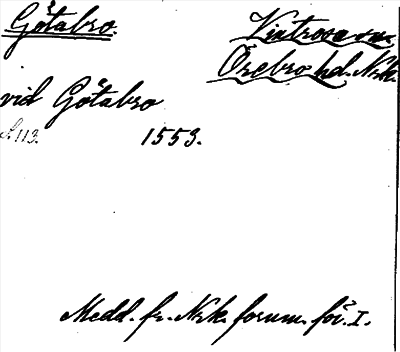 Götabro.
Vintrosa sn.
Örebro hd. Nrk.
vid Götabro
S. 113.
1553.
Medd. fr. Nrk. fornm. för. I.